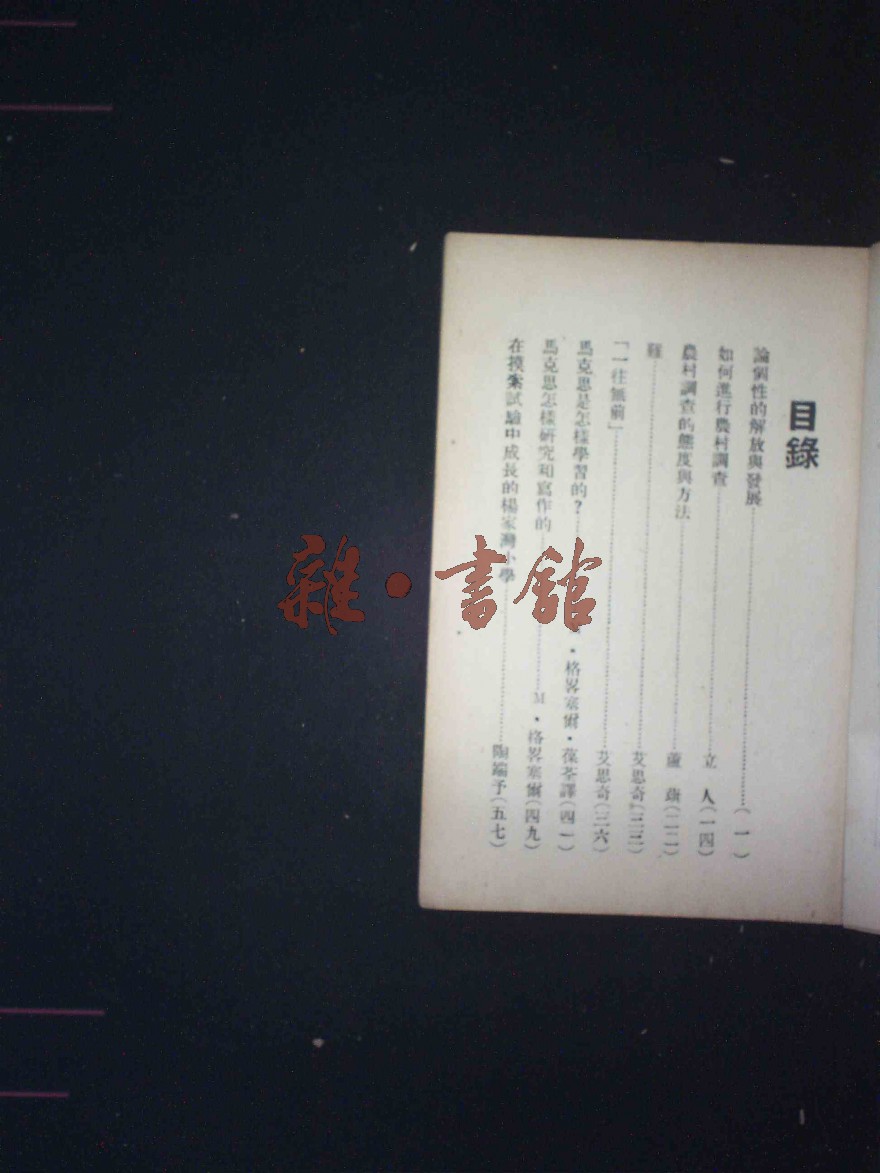 目錄
論個性的解放與發展（一）
如何進行農村調查 立人（一四）
農村調查的態度與方法（二二）
難 艾思奇（三三）
「一往無前」 艾思奇（三六）
馬克思是怎樣學習的？・格畧塞爾・葆荃譯（四一）
馬克思怎樣研究和寫作的 M・格畧塞爾（四九）
在摸索試驗中成長的楊家灣小學 陶端予（五七）
雜・書館